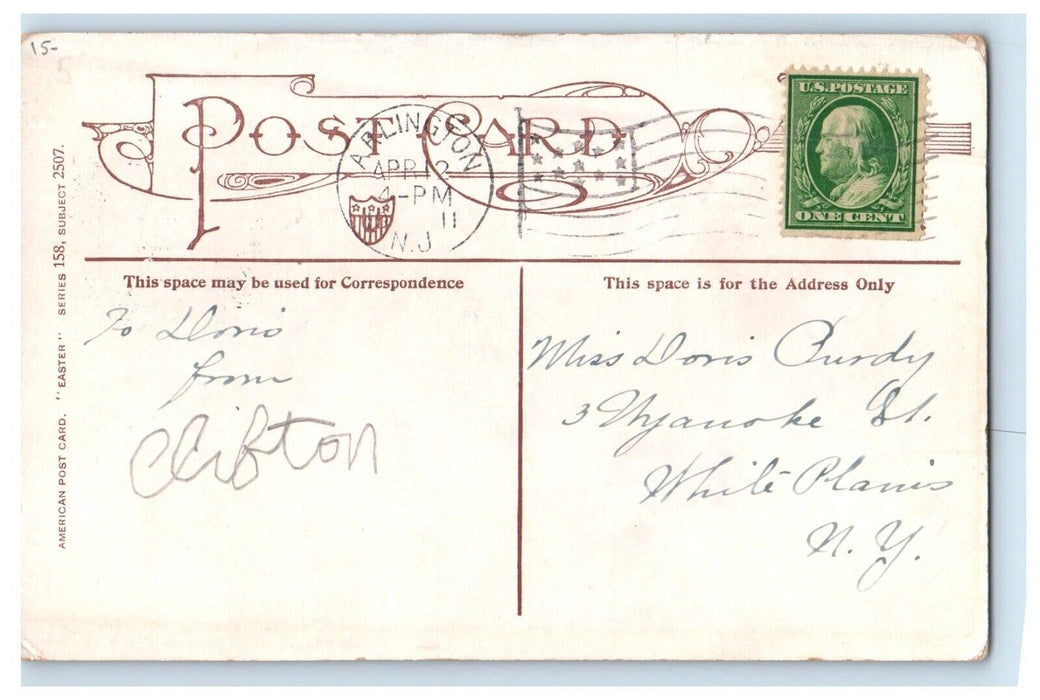 15-
5
POST CARD
ARLINGTON
APR 12
4-PM
11
N.J
U.S. POSTAGE
ONE CENT
AMERICAN POST CARD. "EASTER" SERIES 158, SUBJECT 2507.
This space may be used for Correspondence
To Doris
from
Clifton
This space is for the Address Only
Miss Doris Purdy
3 Nyanoke St.
White Plains
N. Y.